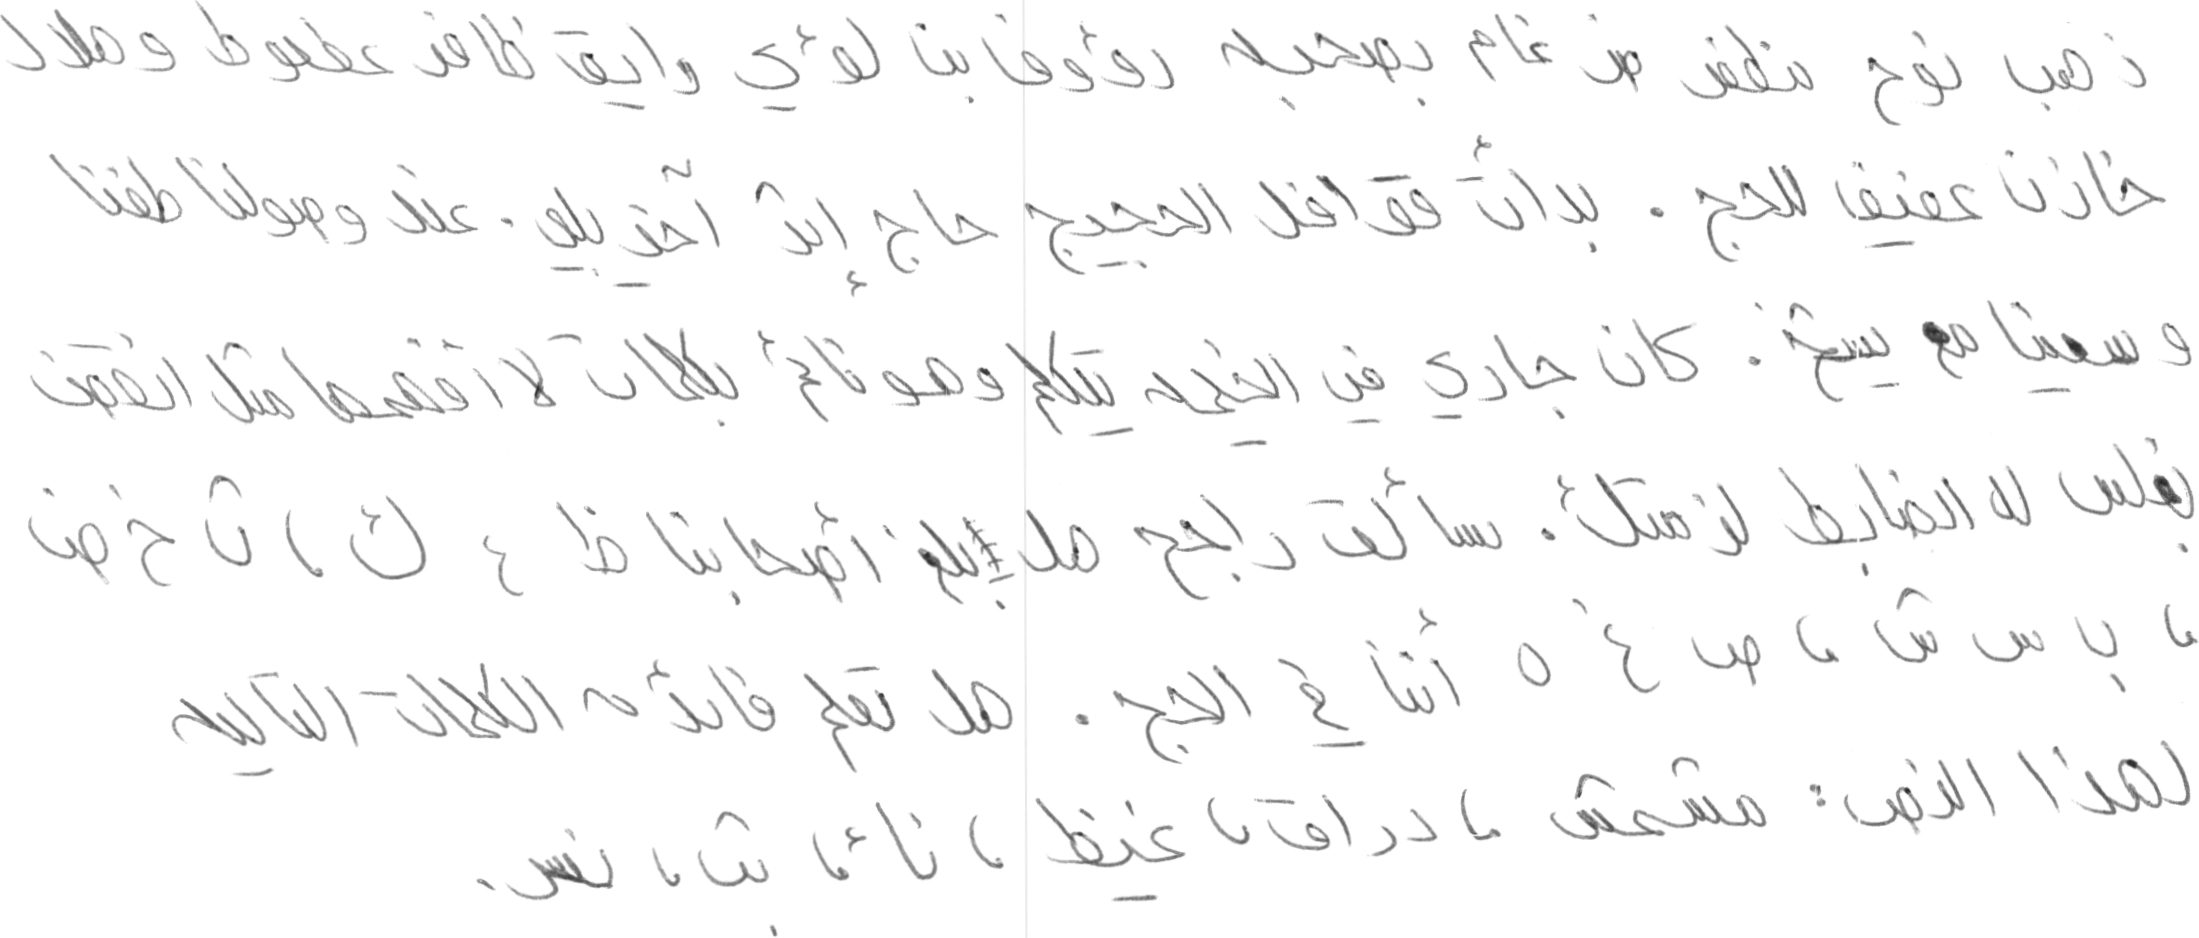 ذهب نوح مظفر ضرغام بصحبه رؤوف بن لؤي وايق ظافر عطعوط وهلال
خازن عفيف للحج . بدأت قوافل الحجيج حاج إثر آخر يلبي . عند وصولنا طفنا
وسعينا مع يسبخ . كان جاري في الخيمه يتكلم وهو نائم بكلمات لا افهمها مثل انقضت
بغلس له الضابط لازمتك . سألت راجح هل يبلغ أصحابنا ظ ع ك ، ث خ ض
، ب س ش ، ص غ ه أثنا في الحج . هل تعلم فائده الكلمات التاليه
لهذا النص : مشمش ، دراق ، غيظ ، نائ ، بث ، نفس .